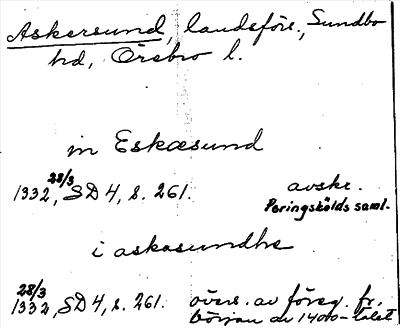 Askersund, landsförs., Sundbo
hd, Örebro l.
in Eskæsund
1332 28/3, SD 4, s. 261. avskr.
Peringskölds saml.
i askasundhe
1332 28/3, SD 4, s. 261. övers. av föreg. fr.
början av 1400-talet